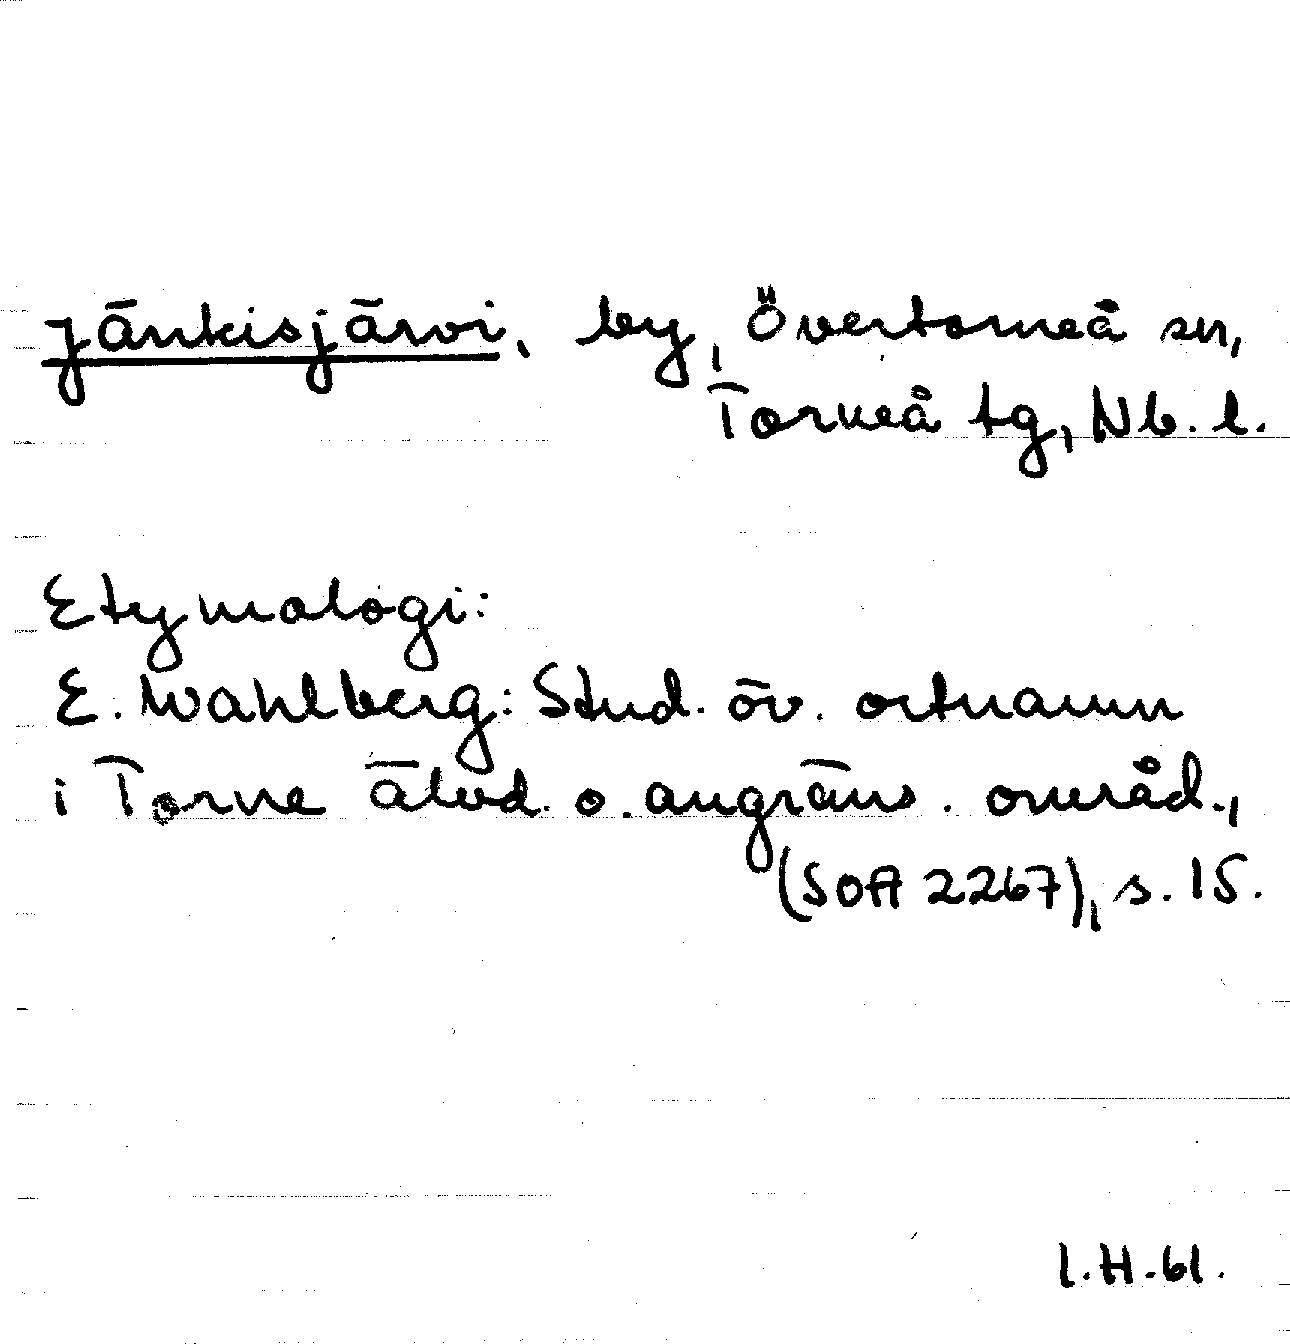 Jänkisjärvi, by, Övertorneå sn,
Torneå tg, Nb. l.
Etymologi:
E. Wahlberg: Stud. öv. ortnamn
i Torne älvd. o. angräns. områd.,
(SOA 2267), s. 15.
I.H.61.